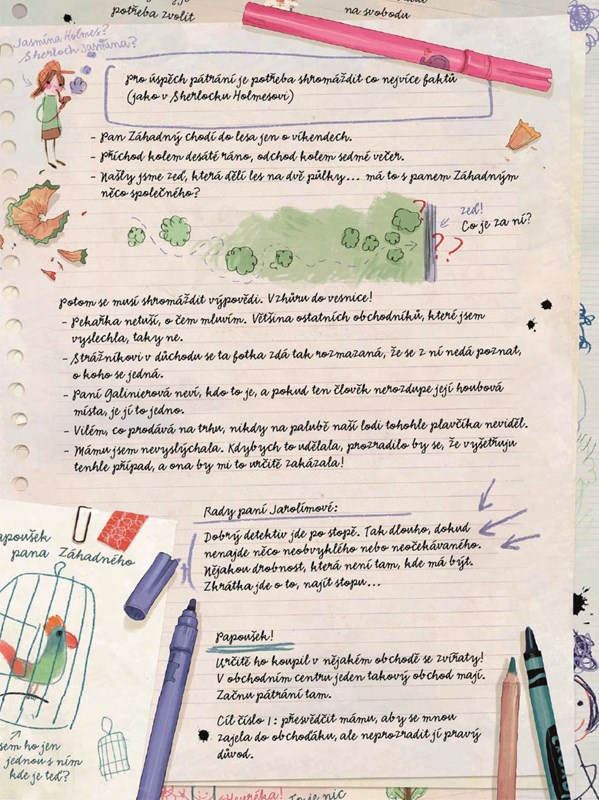 potřeba zvolit
na svobodu
Jasmína Holmes?
Sherloch Jasmína?
Pro úspěch pátrání je potřeba shromáždit co nejvíce faktů
(jako v Sherlocku Holmesovi)
- Pan Záhadný chodí do lesa jen o víkendech.
- Příchod kolem desáté ráno, odchod kolem sedmé večer.
- Našly jsme zeď, která dělí les na dvě půlky... má to s panem Záhadným
něco společného?
zeď!
Co je za ní?
?
? ?
Potom se musí shromáždit výpovědi. Vzhůru do vesnice!
- Pekařka netuší, o čem mluvím. Většina ostatních obchodníků, které jsem
vyslechla, taky ne.
- Strážníkovi v důchodu se ta fotka zdá tak rozmazaná, že se z ní nedá poznat,
o koho se jedná.
- Paní Galinierová neví, kdo to je, a pokud ten člověk nerozdupe její houbová
místa, je jí to jedno.
- Vilém, co prodává na trhu, nikdy na palubě naší lodi tohohle plavčíka neviděl.
- Mámu jsem nevyslýchala. Kdybych to udělala, prozradilo by se, že vyšetřuju
tenhle případ, a ona by mi to určitě zakázala!
Rady paní Jarolímové:
Dobrý detektiv jde po stopě. Tak dlouho, dokud
nenajde něco neobvyklého nebo neočekávaného.
Nějakou drobnost, která není tam, kde má být.
Zkrátka jde o to, najít stopu...
apoušek
pana Záhadného
sem ho jen
jednou s ním
kde je teď?
Papoušek!
Určitě ho koupil v nějakém obchodě se zvířaty!
V obchodním centru jeden takový obchod mají.
Začnu pátrání tam.
Cíl číslo 1: přesvědčit mámu, aby se mnou
zajela do obchoďáku, ale neprozradit jí pravý
důvod.
Heuréka!
nic